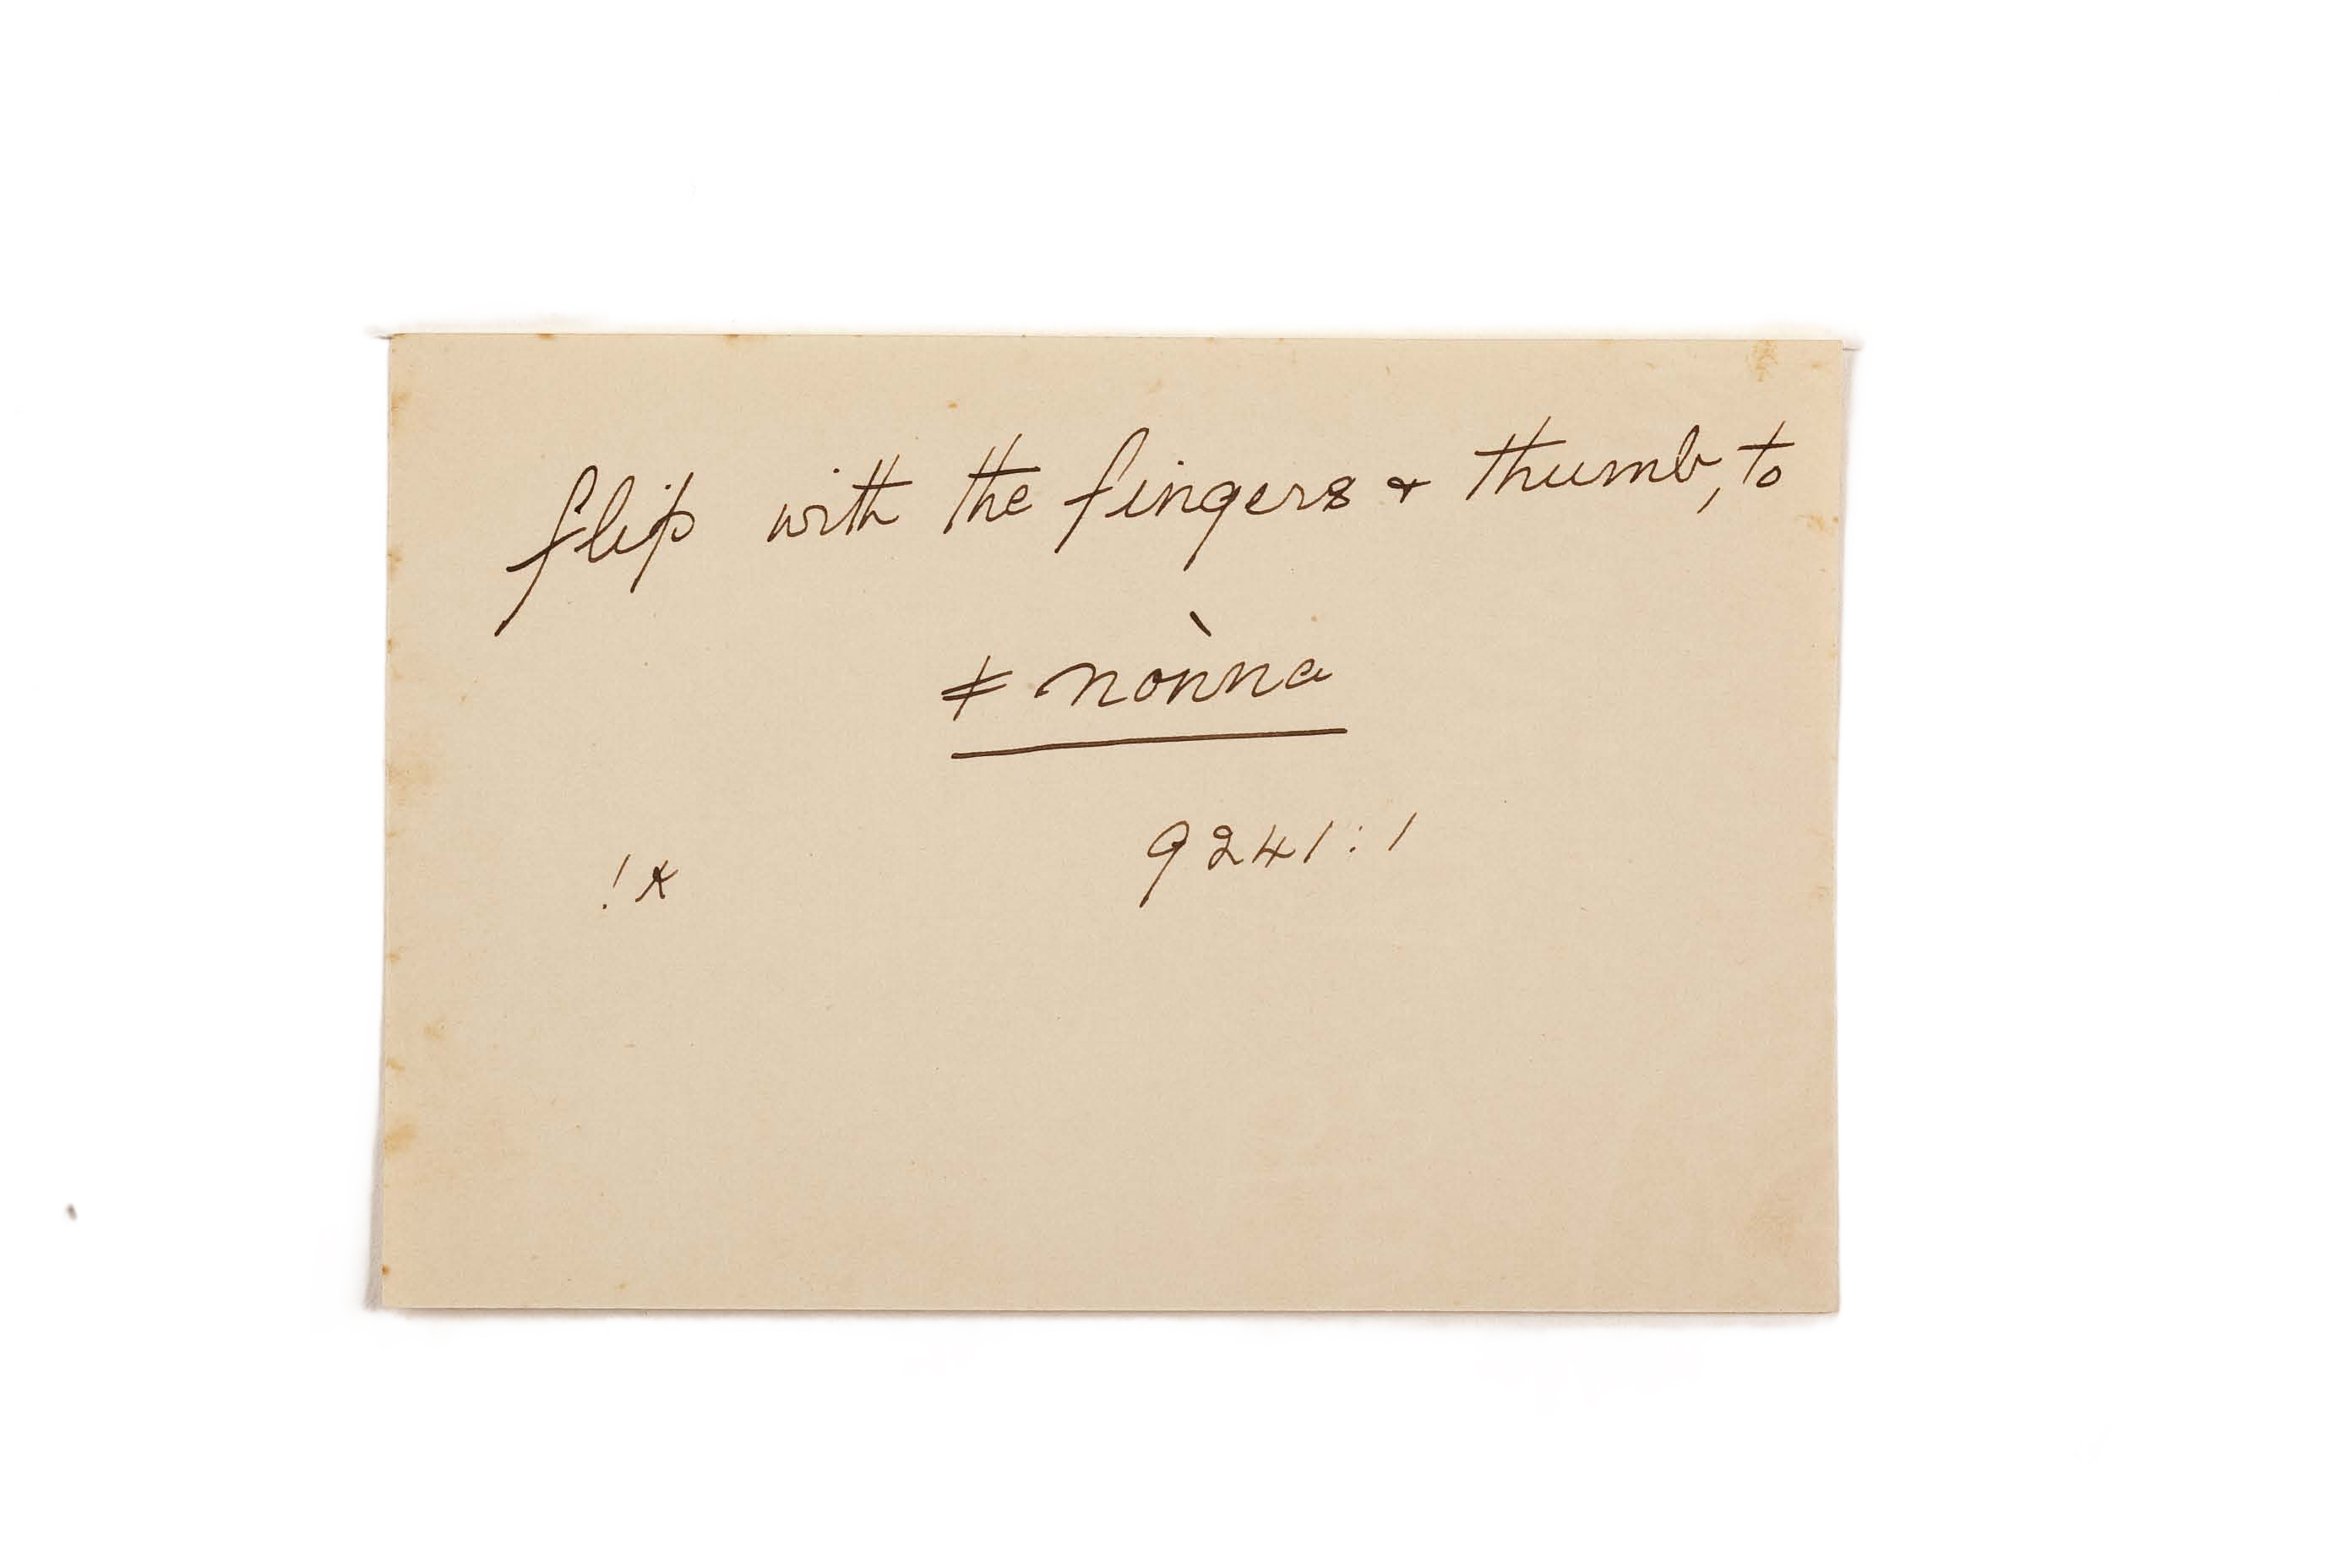 flip with the fingers & thumb, to
ǂ nònna
9241:1
!x